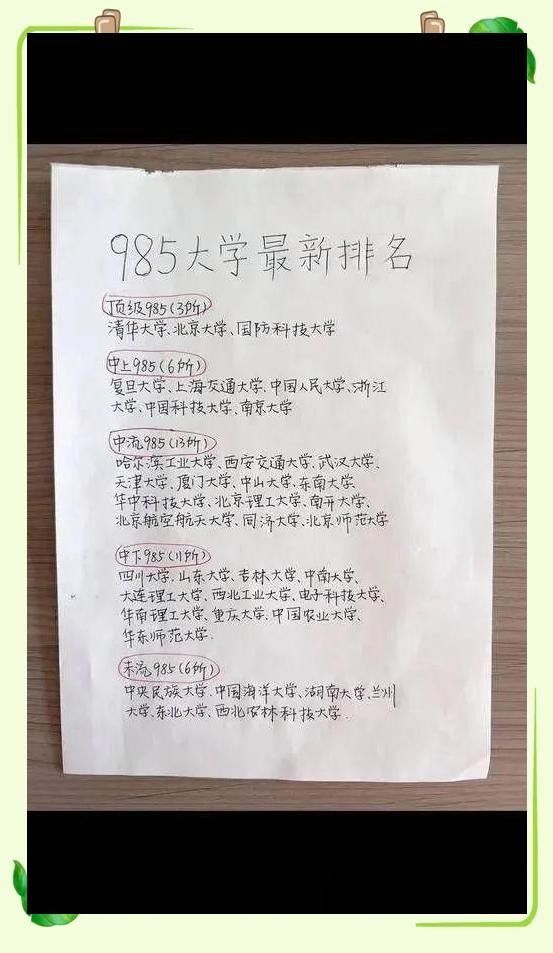 985大学最新排名
顶级985(3所)
清华大学、北京大学、国防科技大学
中上985(6所)
复旦大学、上海交通大学、中国人民大学、浙江
大学、中国科技大学、南京大学
中流985(13所)
哈尔滨工业大学、西安交通大学、武汉大学、
天津大学、厦门大学、中山大学、东南大学、
华中科技大学、北京理工大学、南开大学、
北京航空航天大学、同济大学、北京师范大学
中下985(11所)
四川大学、山东大学、吉林大学、中南大学、
大连理工大学、西北工业大学、电子科技大学、
华南理工大学、重庆大学、中国农业大学、
华东师范大学.
末流985(6所)
中央民族大学、中国海洋大学、湖南大学、兰州
大学、东北大学、西北农林科技大学.